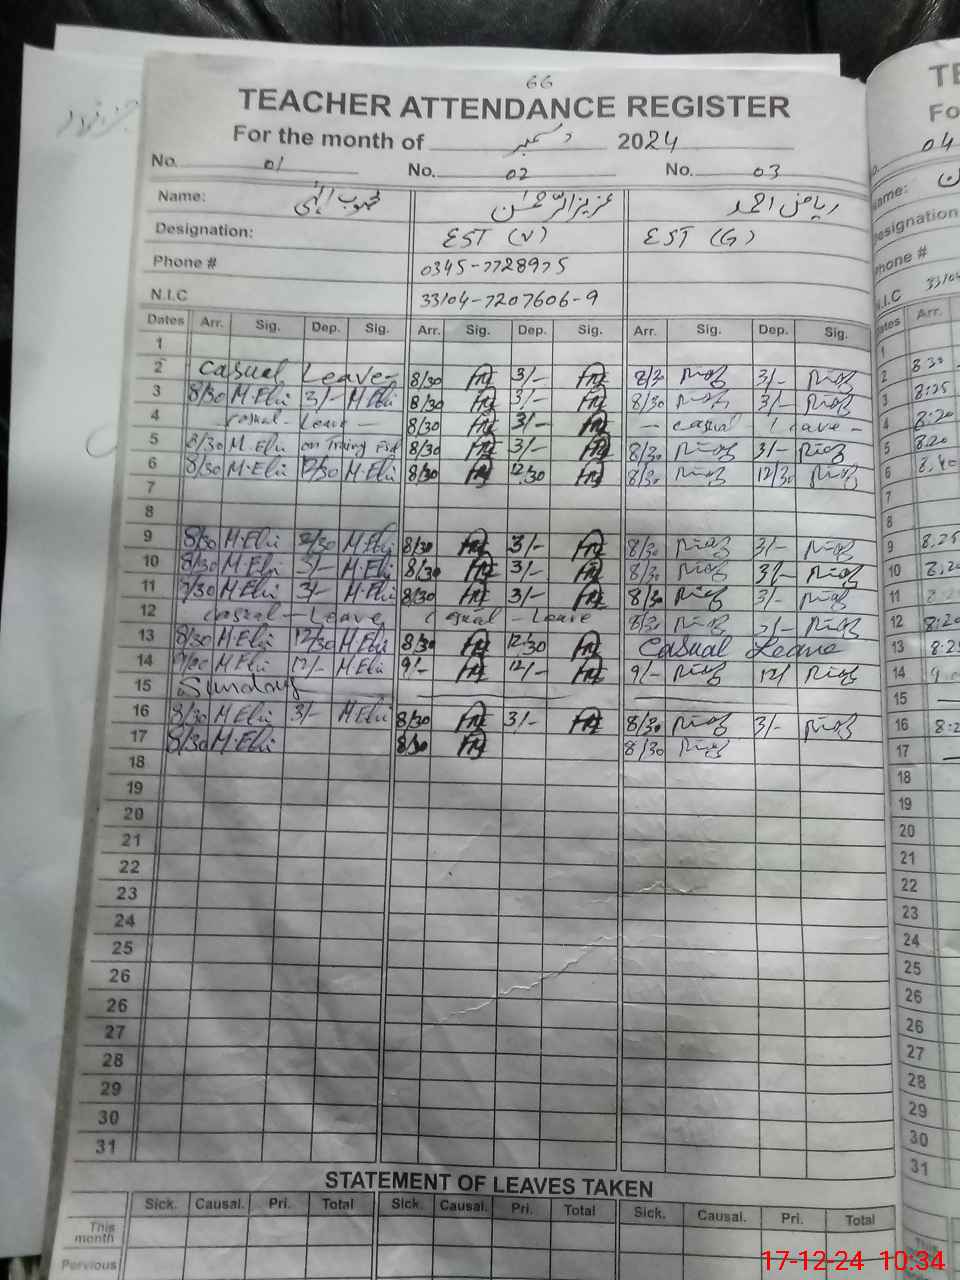 66
TEACHER ATTENDANCE REGISTER
For the month of دسمبر 2024
No. 01 No. 02 No. 03
Name: محبوب الٰہی عزیز الرحمٰن ریاض احمد
Designation: EST (V) EST (G)
Phone # 0345-7728975
N.I.C 33104-7207606-9
Dates Arr. Sig. Dep. Sig. Arr. Sig. Dep. Sig. Arr. Sig. Dep. Sig.
1
2 Casual Leave 8/30 3/- 8/30 Riaz 3/- Riaz
3 8/30 M.Elii 3/- M.Elii 8/30 3/- 8/30 Riaz 3/- Riaz
4 casual - Leave - 8/30 3/- - casual - Leave -
5 8/30 M.Elii on 8/30 3/- 8/30 Riaz 3/- Riaz
6 8/30 M.Elii 12/30 M.Elii 8/30 12:30 8/30 Riaz 12/30 Riaz
7
8
9 8/30 M.Elii M.Elii 8/30 3/- 8/30 Riaz 3/- Riaz
10 8/30 M.Elii 3/- M.Elii 8/30 3/- 8/30 Riaz 3/- Riaz
11 M.Elii 3/- M.Elii 8/30 3/- 8/30 Riaz 3/- Riaz
12 casual - Leave casual - Leave 8/30 Riaz 3/- Riaz
13 8/30 M.Elii 12/30 M.Elii 8/30 12:30 Casual Leave
14 9/00 M.Elii 12/- M.Elii 9/- 12/- 9/- Riaz 12/ Riaz
15 Sunday
16 8/30 M.Elii 3/- M.Elii 8/30 3/- 8/30 Riaz 3/- Riaz
17 8/30 M.Elii 8/30 8/30 Riaz
18
19
20
21
22
23
24
25
26
26
27
28
29
30
31
STATEMENT OF LEAVES TAKEN
Sick. Causal. Pri. Total Sick. Causal. Pri. Total Sick. Causal. Pri. Total
This month
Pervious
TE
Fo
04
Name:
Designation
Phone #
N.I.C 33104
Dates Arr.
1
2 8:30
3 8:25
4 8:20
5 8:20
6 8:40
7
8
9 8:25
10 8:20
11
12 8:20
13
14
15
16
17
18
19
20
21
22
23
24
25
26
26
27
28
29
30
31
17-12-24 10:34